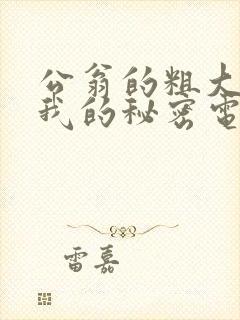 公翁的粗大
我的秘密電
雷嘉